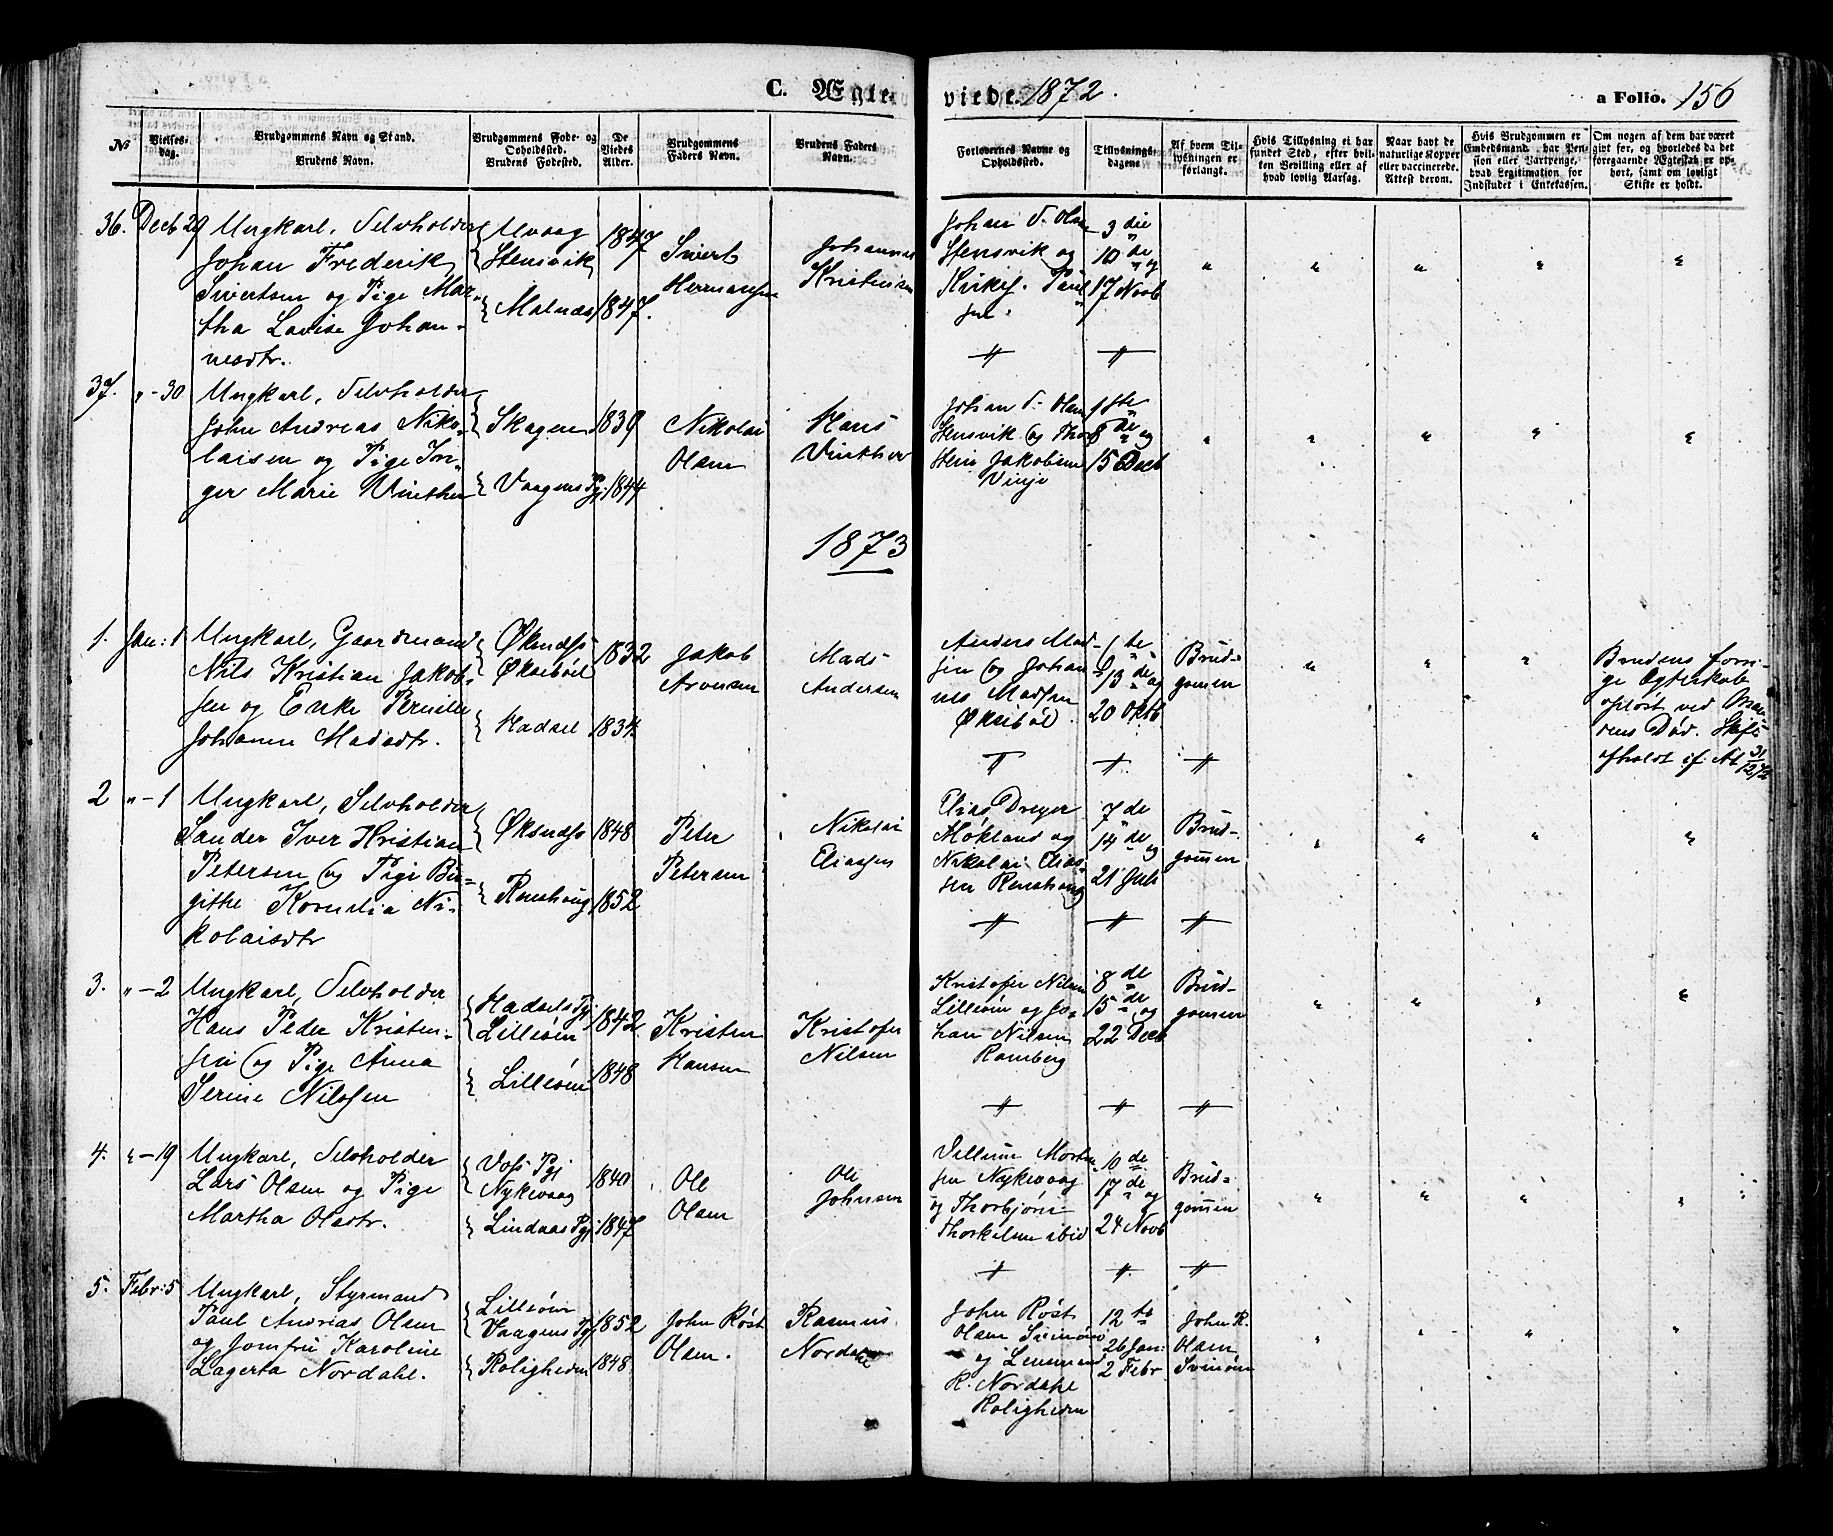 C. Ægte- viede. 1872. a Folio. 156
No
Vielses-
dag.
Brudgommens Navn og Stand.
Brudens Navn.
Brudgommens Føde- og
Opholdssted.
Brudens Fødested.
De
Viedes
Alder.
Brudgommens
Faders Navn.
Brudens Faders
Navn.
Forlovernes Navne og
Opholdssted.
Tillysnings-
dagene.
Af hvem Til-
lysningen er
forlangt.
Hvis Tillysning ei har
fundet Sted, efter hvil-
ken Bevilling eller af
hvad lovlig Aarsag.
Naar havt de
naturlige Kopper
eller vaccinerede.
Attest derom.
Hvis Brudgommen er
Embedsmand, har Pen-
sion eller Vartpenge,
hvad Legitimation for
Indskudet i Enkekassen.
Om nogen af dem har været
givt før, og hvorledes da det
foregaaende Ægteskab er op-
hørt, samt om lovligt
Skifte er holdt.
36. Decb 29
Ungkarl, Selvholder
Johan Frederik
Sivertsen og Pige Mar-
tha Lovise Johan-
nesdtr.
Uvaag
Stensvik
Malnæs
1847
1847.
Sivert
Hermansen
Johannes
Kristensen
Johan S. Olsen
Stensvik og
Kirkes. Paul
sen.
3 die
10 de og
17 Novb
37. " - 30
Ungkarl, Selvholder
John Andreas Niko-
laisen og Pige In-
ger Marie Vinther
Skagen
Vaagens Pgj.
1839
1844
Nikolai
Olsen
Hans
Vinther
Johan S. Olsen
Stensvik og Thor
stein Jakobsen
Vinje
1ste
8 de og
15 Decb
1873
1. Jan: 1
Ungkarl, Gaardmand
Nils Kristian Jakob-
sen og Enke Pernille
Johanna Madsdtr.
Øksnæss
Øksebøl
Hadsel
1832
1834
Jakob
Arentsen
Mads
Andersen
Anders Mad-
sen og Johan
nes Madsen
Øksebøl.
6 te
13 de og
20 Oktb
Brud-
gommen
Brudens forri-
ge Ægteskab
opløst ved Man-
dens Død. Skifte
afholdt if. At. 31/12 72
2 " - 1
Ungkarl, Selvholder
Sander Iver Kristian
Petersen og Pige Bir-
githe Kornelia Ni-
kolaisdtr
Øksnæss
Rønshaug
1848
1852
Peter
Petersen
Nikolai
Eliassen
Elias Dreyer
Møkland og
Nikolai Elias-
sen Rønshaug
7 de
14 de og
21 Juli
Brud-
gommen
3. " - 2
Ungkarl, Selvholder
Hans Peder Kristen-
sen og Pige Anna
Serine Nilssen
Hadsels Pgj.
Lilleøen
Lilleøen
1842
1848
Kristen
Hansen
Kristofer
Nilsen
Kristofer Nilsen
Lilleøen og Jo-
han Nilsen
Ramberg
8 de
15 de og
22 Decb
Brud-
gommen
4. " - 19
Ungkarl, Selvholder
Lars Olsen og Pige
Martha Olsdtr.
Voss Pgj
Nykvaag
Lindaas Pgj.
1840
1847
Ole
Olsen
Ole
Johnsen
Villum Morten
sen Nykvaag
og Thorbjørn
Thorkilsen ibid
10 de
17 de og
24 Novb
Brud-
gommen
5. Febr: 5
Ungkarl, Styrmand
Paul Andreas Olsen
og Jomfru Karoline
Lagerta Nordahl.
Lilleøen
Vaagens Pgj
Roligheden
1852
1848
John Røst
Olsen.
Rasmus
Nordahl
John Røst
Olsen Svinøen
og Lensmand
R. Nordahl
Roligheden
12 te
26 Jan:
2 Febr
John R.
Olsen
Svinøen